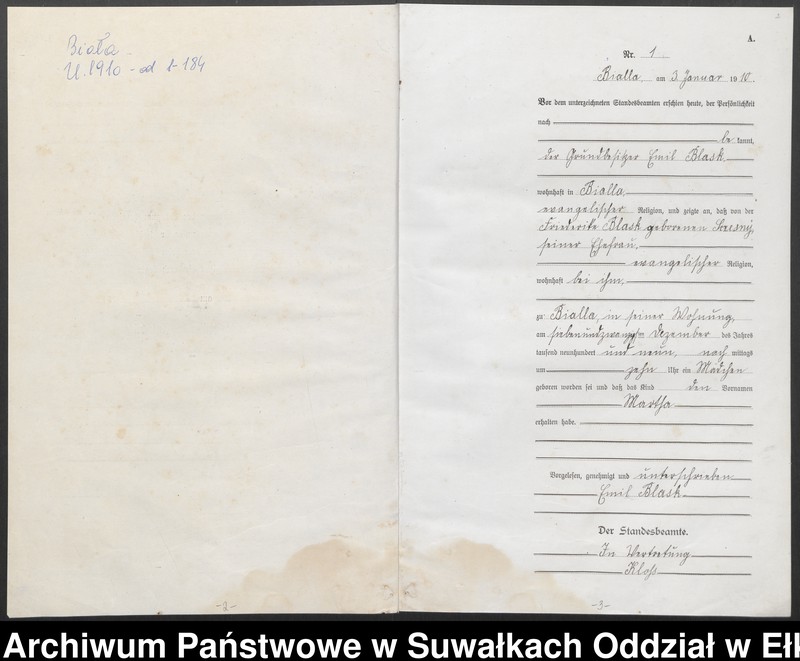 Biała
U. 1910 - od 1-184
A.
Nr. 1.
Bialla, am 3. Januar 1910.
Vor dem unterzeichneten Standesbeamten erschien heute, der Persönlichkeit
nach
be kannt,
der Grundbesitzer Emil Blask
wohnhaft in Bialla
evangelischer Religion, und zeigte an, daß von der
Friederike Blask geborenen
seiner Ehefrau,
evangelischer Religion,
wohnhaft bei ihm,
zu Bialla, in seiner Wohnung,
am siebenundzwanzigsten Dezember des Jahres
tausend neunhundert und neun, nach mittags
um zehn Uhr ein Mädchen
geboren worden sei und daß das Kind den Vornamen
Martha
erhalten habe.
Vorgelesen, genehmigt und unterschrieben
Emil Blask
Der Standesbeamte.
In Vertretung
Kloss
-2-
-3-
Archiwum Państwowe w Suwałkach Oddział w Eł